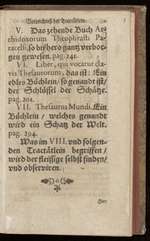 Verzeichnuß der Tractätlein.
V. Das zehende Buch Ar-
chidoxorum Theophrasti Pa-
racelsi, so bißhero gantz verbor-
gen gewesen. pag. 241.
VI. Liber, qui vocatur cla-
vis Thesaurorum, das ist: Ein
edles Büchlein, so genandt ist,
der Schlüssel der Schätze.
pag. 201.
VII. Thesaurus Mundi. Ein
Büchlein, welches genandt
wird ein Schatz der Welt.
pag. 294.
Was im VIII. und folgen-
den Tractätlein begriffen,
wird der fleißige selbst finden/
und observiren.